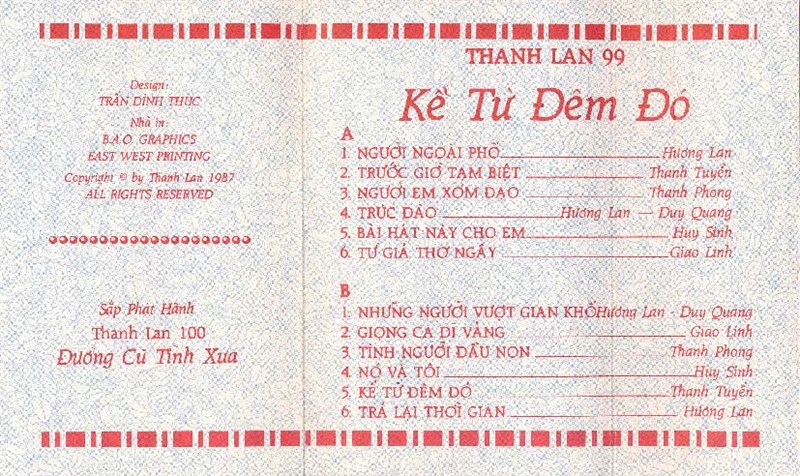 Design:
TRẦN ĐÌNH THỤC
Nhà in:
B.A.O. GRAPHICS
EAST WEST PRINTING
Copyright © by Thanh Lan 1987
ALL RIGHTS RESERVED
Sắp Phát Hành
Thanh Lan 100
Đường Cũ Tình Xưa
THANH LAN 99
Kể Từ Đêm Đó
A
1. NGƯỜI NGOÀI PHỐ Hương Lan
2. TRƯỚC GIỜ TẠM BIỆT Thanh Tuyền
3. NGƯỜI EM XÓM ĐẠO Thanh Phong
4. TRÚC ĐÀO Hương Lan — Duy Quang
5. BÀI HÁT NÀY CHO EM Huy Sinh
6. TỪ GIÃ THƠ NGÂY Giao Linh
B
1. NHỮNG NGƯỜI VƯỢT GIAN KHỔ Hương Lan - Duy Quang
2. GIỌNG CA DĨ VÃNG Giao Linh
3. TÌNH NGƯỜI ĐẦU NON Thanh Phong
4. NÓ VÀ TÔI Huy Sinh
5. KỂ TỪ ĐÊM ĐÓ Thanh Tuyền
6. TRẢ LẠI THỜI GIAN Hương Lan